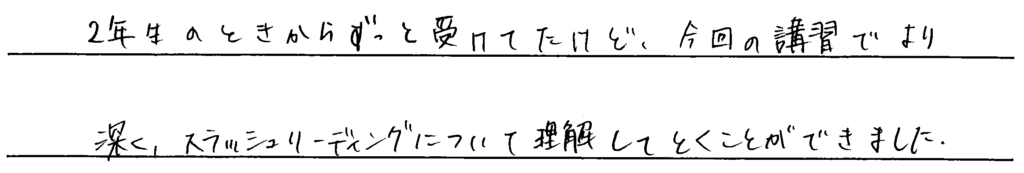 2年生のときからずっと受けてたけど、今回の講習でより
深く、スラッシュリーディングについて理解してとくことができました.